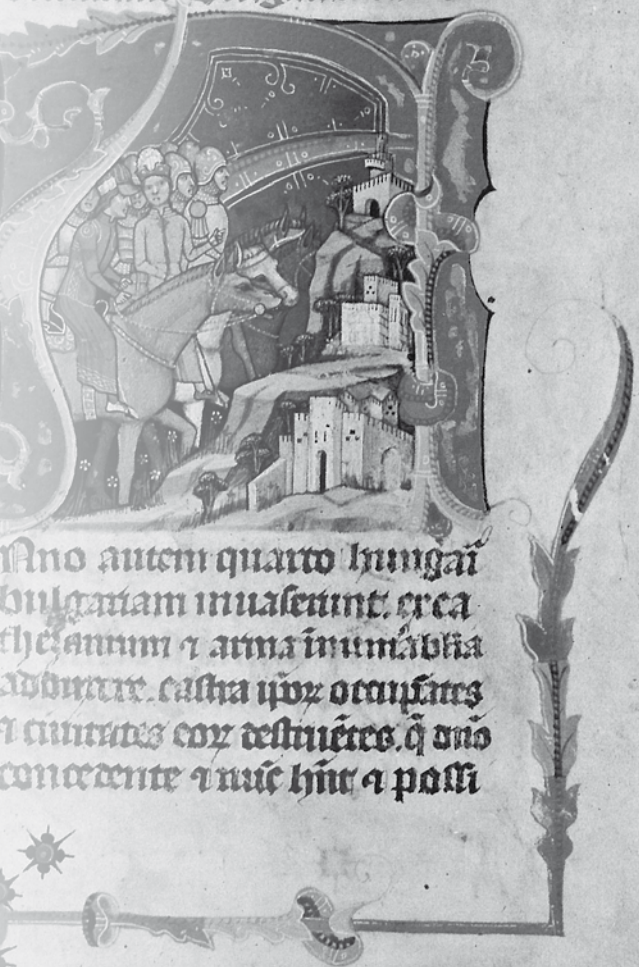 Anno autem quarto hungari̅
bulgariam inuaserunt. et ca
thesaurum ⁊ arma in̅um̅abilia
adduxere. castra ip̅oꝝ occupa̅tes
⁊ ciuitates eoꝝ destrue̅tes. q̅ d̅no
concedente ⁊ nu̅c h̅nt ⁊ possi